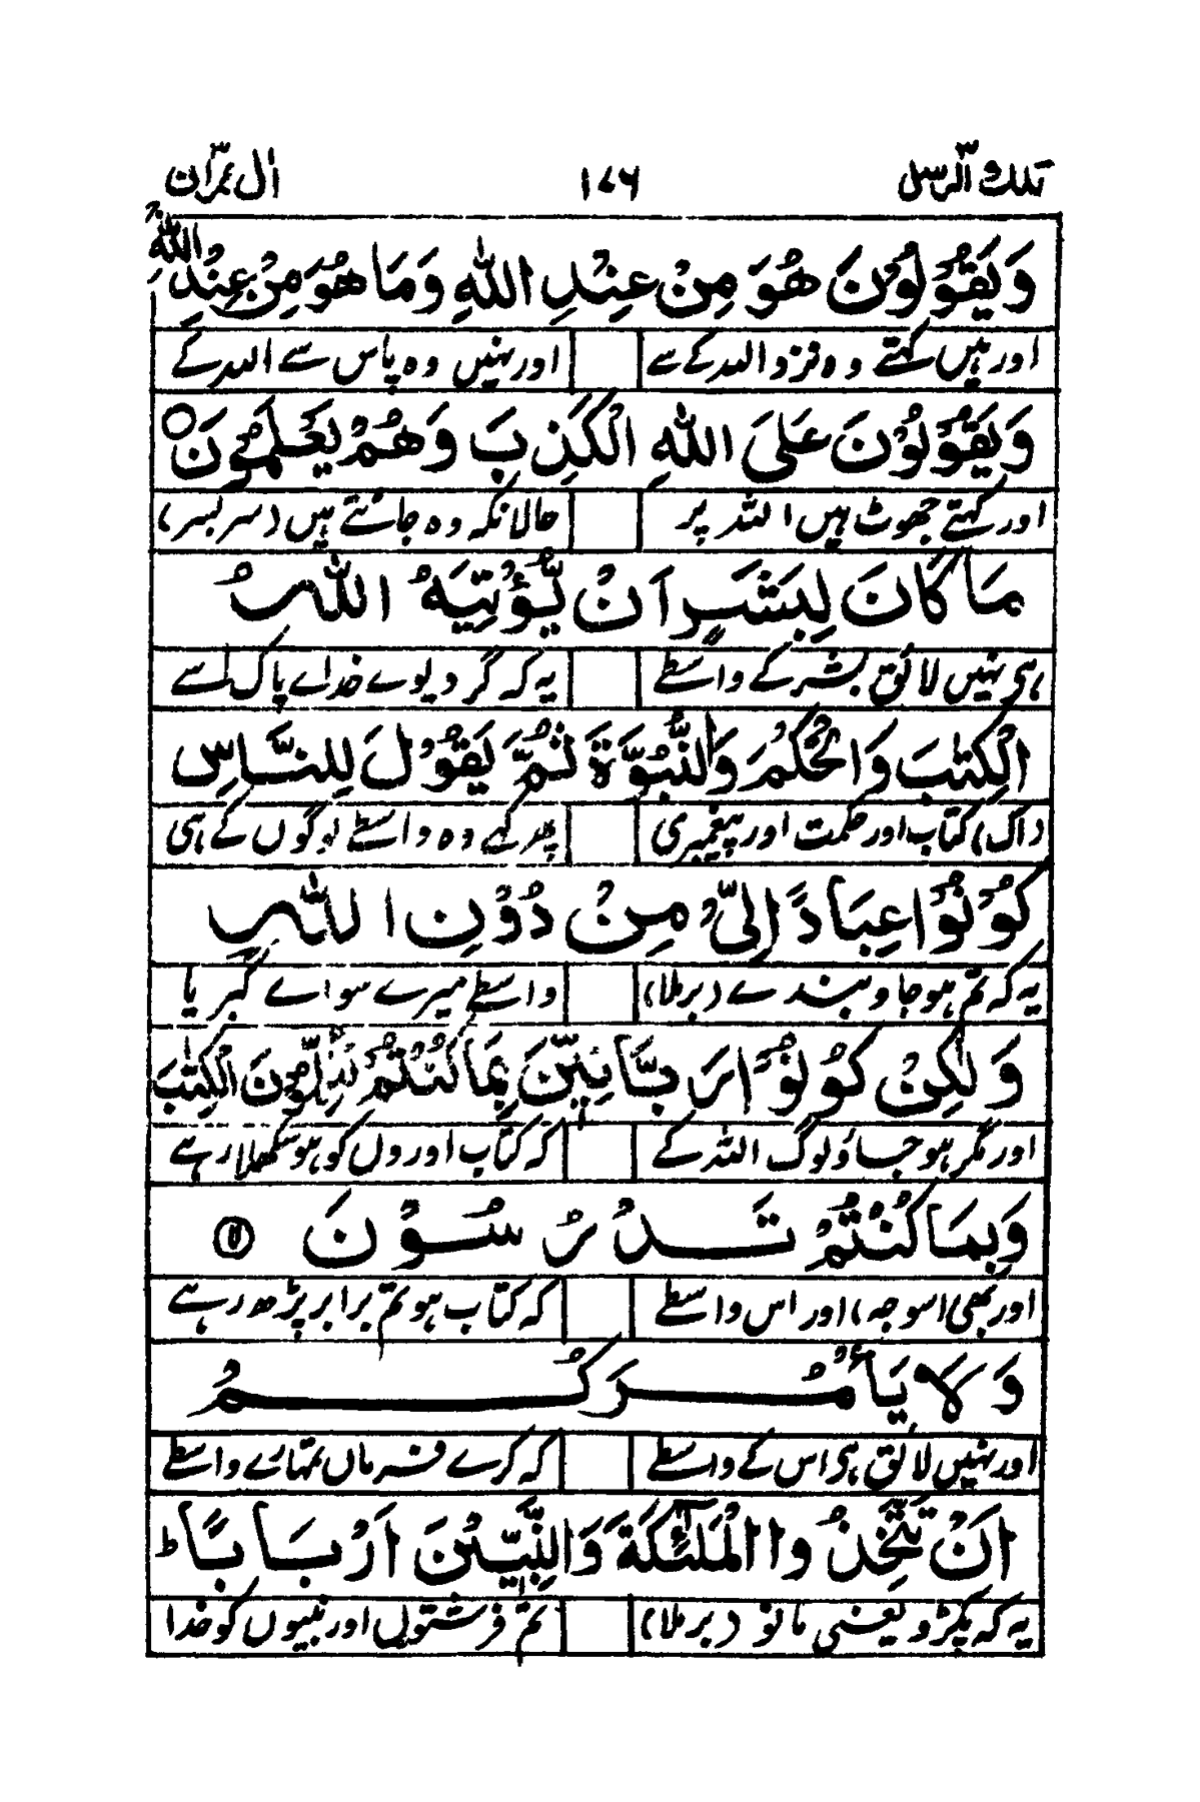 تلك الرسل ٣ ١٧٦ اٰل عمرٰن ٣
وَيَقُوْلُوْنَ هُوَ مِنْ عِنْدِ اللّٰهِ وَمَا هُوَ مِنْ عِنْدِ اللّٰهِ
اور ہیں کہتے وہ نزد اللہ کے سے اور نہیں وہ پاس سے اللہ کے
وَيَقُوْلُوْنَ عَلَى اللّٰهِ الْكَذِبَ وَهُمْ يَعْلَمُوْنَ ○
اور کہتے جھوٹ ہیں اللہ پر حالانکہ وہ جانتے ہیں (سربسر)
مَا كَانَ لِبَشَرٍ اَنْ يُّؤْتِيَهُ اللّٰهُ
ہی نہیں لائق بشر کے واسطے یہ کہ گر دیوے خدائے پاک اسے
الْكِتٰبَ وَالْحُكْمَ وَالنُّبُوَّةَ ثُمَّ يَقُوْلَ لِلنَّاسِ
(اک) کتاب اور حکمت اور پیغمبری پھر کہے وہ واسطے لوگوں کے ہی
كُوْنُوْا عِبَادًا لِّيْ مِنْ دُوْنِ اللّٰهِ
یہ کہ تم ہو جاؤ بندے (برملا) واسطے میرے سوائے کبریا
وَلٰكِنْ كُوْنُوْا رَبَّانِيّٖنَ بِمَا كُنْتُمْ تُعَلِّمُوْنَ الْكِتٰبَ
اور مگر ہو جاؤ لوگ اللہ کے کہ کتاب اوروں کو ہو سکھلا رہے
وَبِمَا كُنْتُمْ تَدْرُسُوْنَ ۷
اور بھی (اسوجہ) اور اس واسطے کہ کتاب ہو تم برابر پڑھ رہے
وَلَا يَأْمُرَكُمْ
اور نہیں لائق ہی اس کے واسطے کہ کرے فرماں تمہارے واسطے
اَنْ تَتَّخِذُوا الْمَلٰٓئِكَةَ وَالنَّبِيّٖنَ اَرْبَابًا ط
یہ کہ پکڑو یعنی مانو (برملا) تم فرشتوں اور نبیوں کو خدا